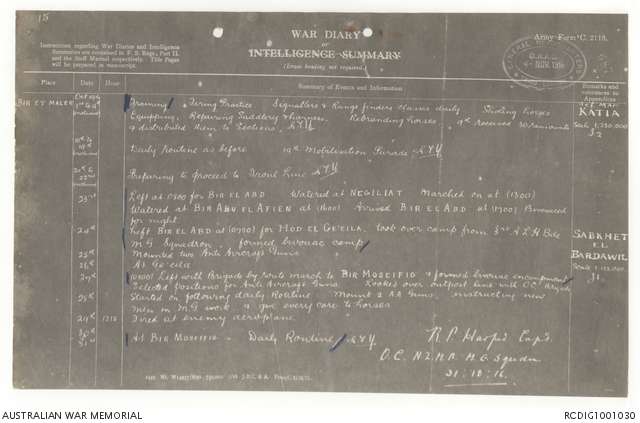 15
WAR DIARY
or
INTELLIGENCE SUMMARY
(Erase heading not required.)
Army Form C. 2118.
Instructions regarding War Diaries and Intelligence
Summaries are contained in F. S. Regs., Part II.
and the Staff Manual respectively. Title Pages
will be prepared in manuscript.
Place Date Hour Summary of Events and Information Remarks and references to Appendices
BIR ET MALER Training, Firing Practice Signallers & Range finders classes daily Shoeing horses
Equipping, Repairing Saddlery & harness. Rebranding horses. received 30 remounts
& distributed them to Sections.
KATIA
Daily Routine as before Mobilisation Parade
Preparing to proceed to Front Line
23rd Left at 0700 for BIR EL ABD Watered at NEGILIAT Marched on at (1300)
Watered at BIR ABU EL AFIEN at (1600) Arrived BIR EL ABD at (1700) Bivouaced
for night.
24th Left BIR EL ABD at (0700) for HOD EL GE'EILA. Took over camp from 3rd A L H Bde
M G Squadron. formed bivouac camp
SABKHET
EL
BARDAWIL
25th Mounted two Anti Aircraft Guns
26th At Ge'eila
27th Left with Brigade by route march to BIR MOSEIFIG & formed bivouac encampment
Selected positions for Anti Aircraft Guns. Looked over outpost line with O.C. Brigade
28th Started on following daily Routine. Mount 2 AA Guns, instructing new
Men in M G work & give every care to horses
29th 1210 Fired at enemy aeroplane
30th
31st At BIR MOSEIFIG Daily Routine
R. P. Harper Capt.
O.C. N Z M R. M. G. Squadron
31.10.16.
AUSTRALIAN WAR MEMORIAL
RCDIG1001030